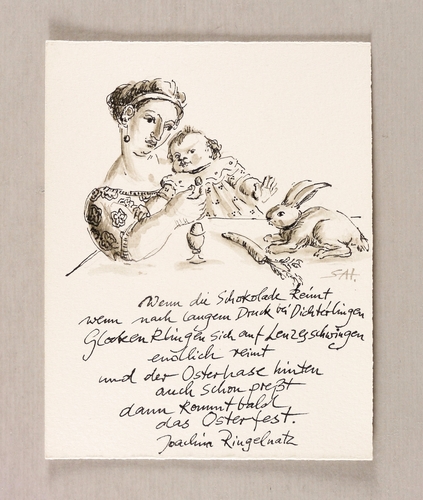 SAH.
Wenn die Schokolade keimt
wenn nach langem Druck bei Dichterlingen
Glocken klingen sich auf Lenzesschwingen
endlich reimt
und der Osterhase hinten
auch schon preßt
dann kommt bald
das Osterfest.
Joachim Ringelnatz